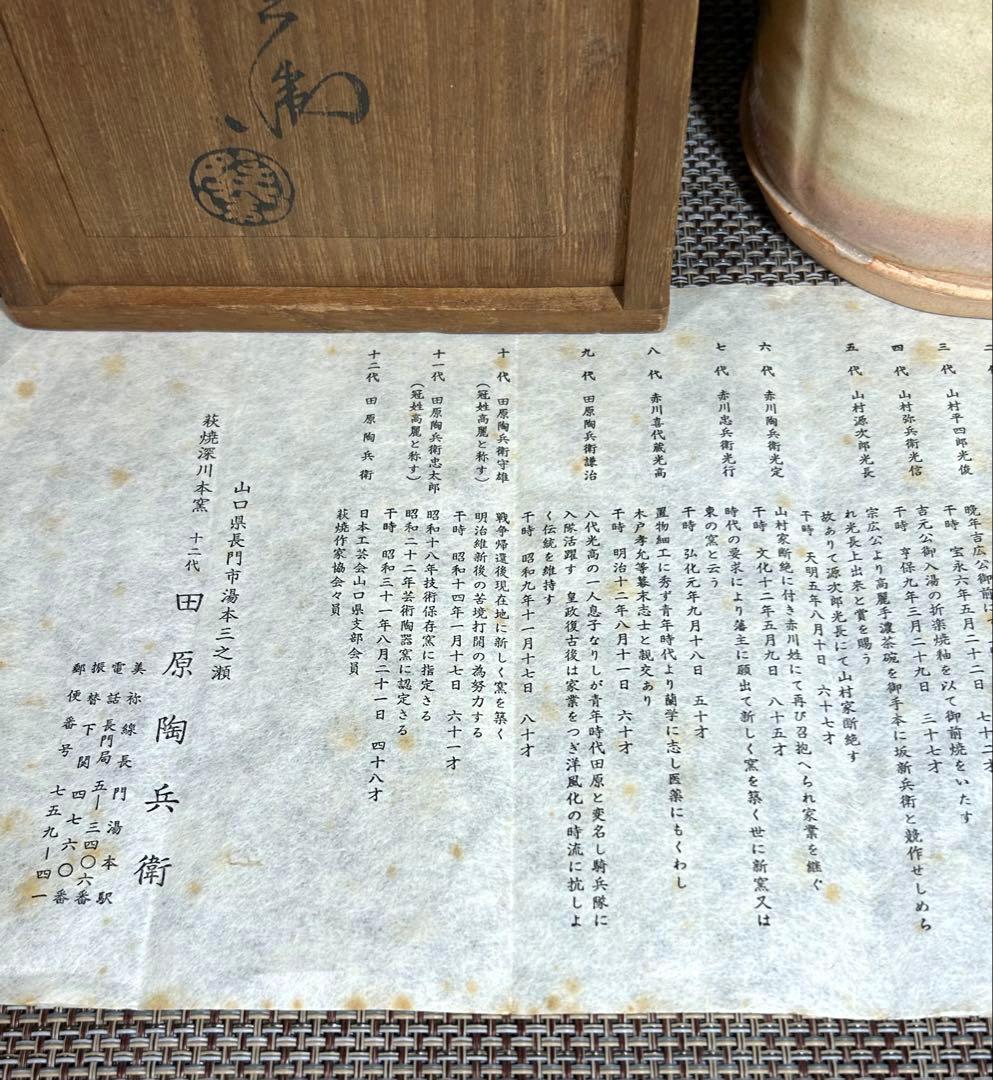 衛
三代 山村平四郎光俊
晩年吉広公御前に
干時 宝永六年五月二十二日 七十二才
四代 山村弥兵衛光信
吉元公御入湯の折楽焼釉を以て御前焼をいたす
干時 享保九年三月二十九日 三十七才
五代 山村源次郎光長
宗広公より高麗手濃茶碗を御手本に坂新兵衛と競作せしめら
れ光長上出来と賞を賜う
故ありて源次郎光長にて山村家断絶す
干時 天明五年八月十日 六十七才
六代 赤川陶兵衛光定
山村家断絶に付き赤川姓にて再び召抱へられ家業を継ぐ
干時 文化十二年五月九日 八十五才
七代 赤川忠兵衛光行
時代の要求により藩主に願出て新しく窯を築く世に新窯又は
東の窯と云う
干時 弘化元年九月十八日 五十才
八代 赤川喜代蔵光高
置物細工に秀ず青年時代より蘭学に志し医薬にもくわし
木戸孝允等幕末志士と親交あり
干時 明治十二年八月十一日 六十才
九代 田原陶兵衛謙治
八代光高の一人息子なりしが青年時代田原と変名し騎兵隊に
入隊活躍す 皇政復古後は家業をつぎ洋風化の時流に抗しよ
く伝統を維持す
干時 昭和九年十一月十七日 八十才
十代 田原陶兵衛守雄
(冠姓高麗と称す)
戦争帰還後現在地に新しく窯を築く
明治維新後の苦境打開の為努力する
干時 昭和十四年一月十七日 六十一才
十一代 田原陶兵衛忠太郎
(冠姓高麗と称す)
昭和十八年技術保存窯に指定さる
昭和二十二年芸術陶器窯に認定さる
干時 昭和三十一年八月二十一日 四十八才
十二代 田原陶兵衛
日本工芸会山口県支部会員
萩焼作家協会々員
山口県長門市湯本三之瀬
萩焼深川本窯 十二代 田原陶兵衛
美祢線長門湯本駅
電話長門局五―三四〇六番
振替下関四七六〇番
郵便番号七五九―四一